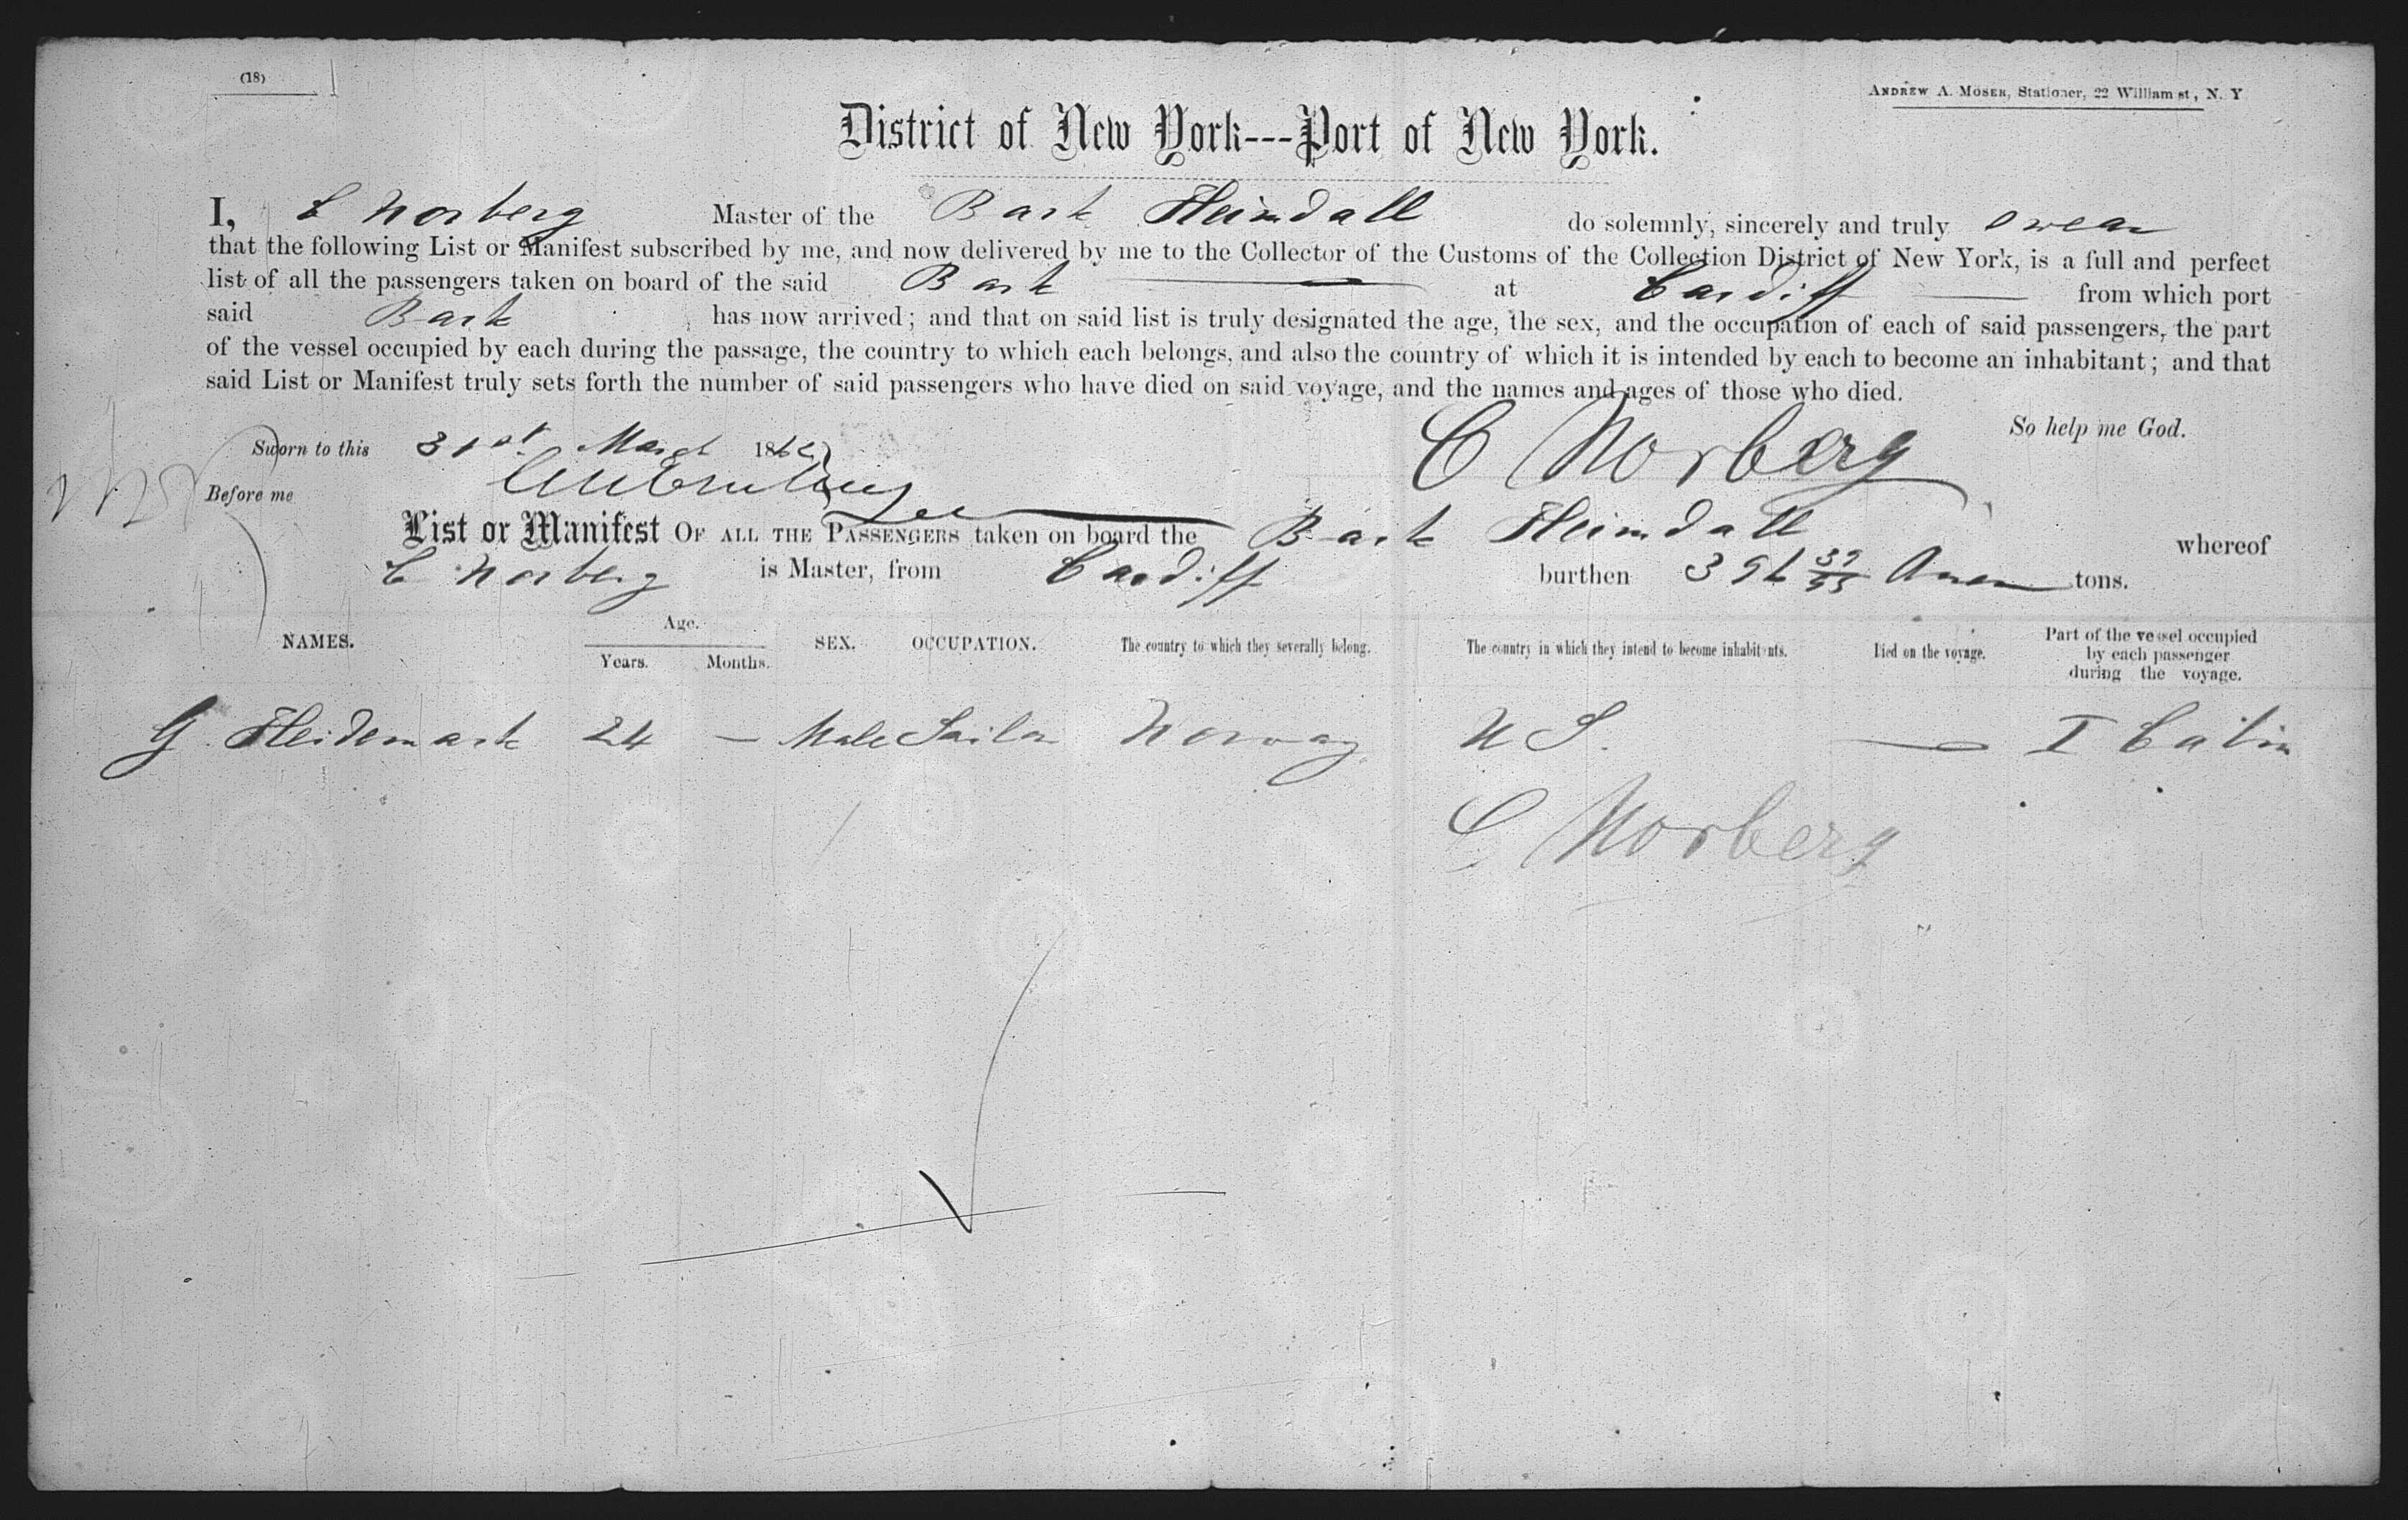 (18)
ANDREW A. MOSER, Stationer, 22 William st, N. Y
District of New York---Port of New York.
I, C Norberg Master of the Bark Heimdall do solemnly, sincerely and truly swear
that the following List or Manifest subscribed by me, and now delivered by me to the Collector of the Customs of the Collection District of New York, is a full and perfect
list of all the passengers taken on board of the said Bark at Cardiff from which port
said Bark has now arrived; and that on said list is truly designated the age, the sex, and the occupation of each of said passengers, the part
of the vessel occupied by each during the passage, the country to which each belongs, and also the country of which it is intended by each to become an inhabitant; and that
said List or Manifest truly sets forth the number of said passengers who have died on said voyage, and the names and ages of those who died.
So help me God.
Sworn to this 31st March 186
C Norberg
Before me
List or Manifest OF ALL THE PASSENGERS taken on board the Bark Heimdall whereof
C Norberg is Master, from Cardiff burthen tons.
NAMES. Age. Years. Months. SEX. OCCUPATION. The country to which they severally belong. The country in which they intend to become inhabitants. Died on the voyage. Part of the vessel occupied by each passenger during the voyage.
G. Heidemark 24 — Male Sailor Norway U S. — I Cabin
C Norberg